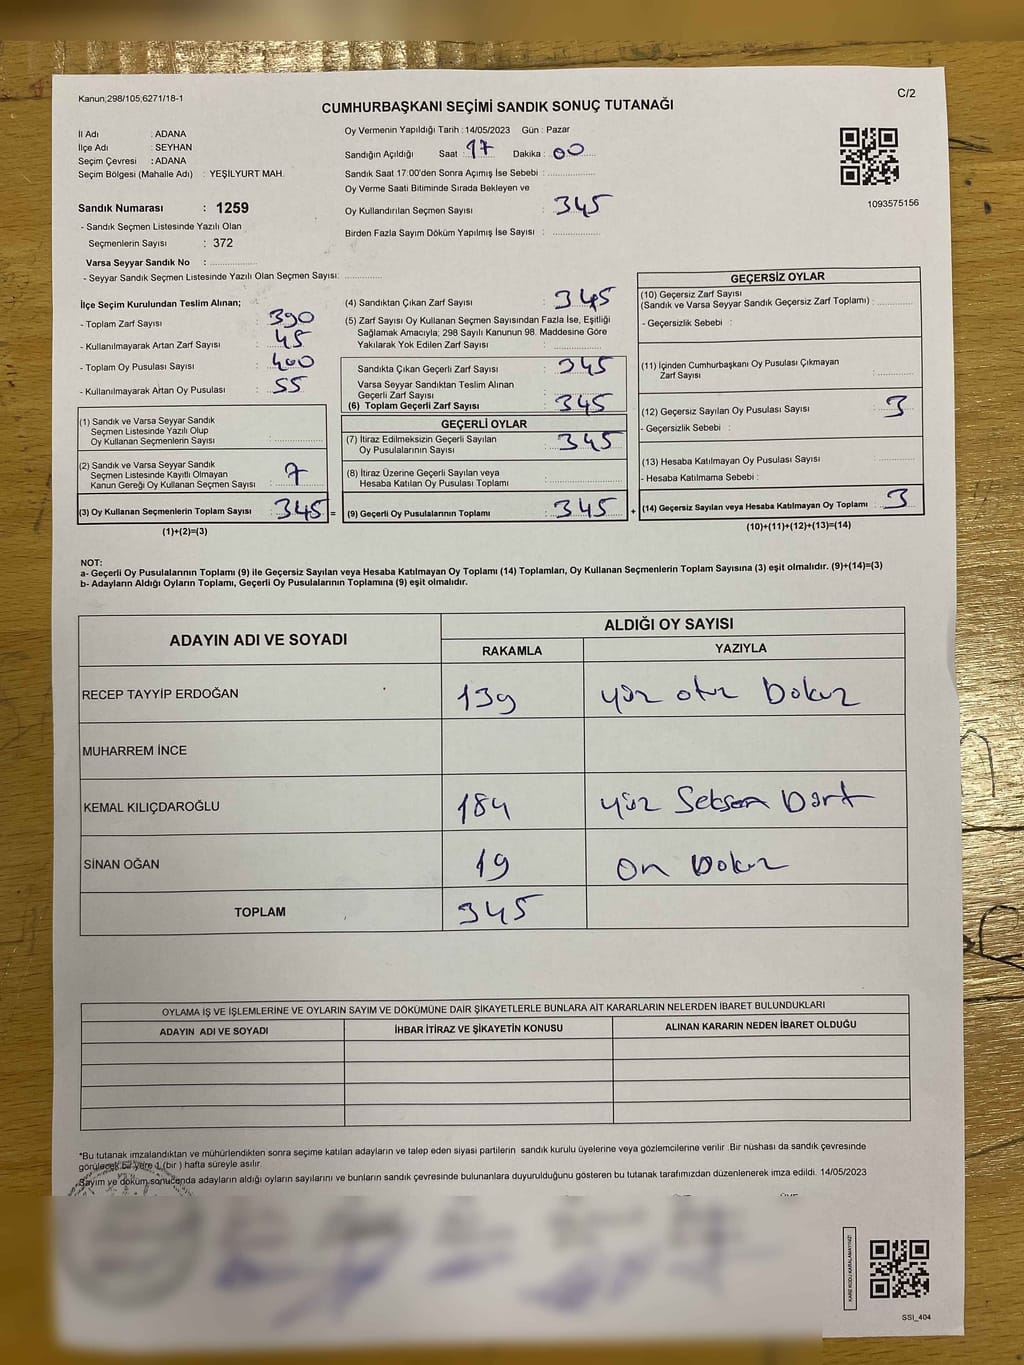 Kanun;298/105,6271/18-1
C/2
CUMHURBAŞKANI SEÇİMİ SANDIK SONUÇ TUTANAĞI
İl Adı : ADANA
İlçe Adı : SEYHAN
Seçim Çevresi : ADANA
Seçim Bölgesi (Mahalle Adı) : YEŞİLYURT MAH.
Sandık Numarası : 1259
- Sandık Seçmen Listesinde Yazılı Olan
Seçmenlerin Sayısı : 372
Varsa Seyyar Sandık No :
- Seyyar Sandık Seçmen Listesinde Yazılı Olan Seçmen Sayısı:
Oy Vermenin Yapıldığı Tarih : 14/05/2023 Gün : Pazar
Sandığın Açıldığı Saat : 17 Dakika : 00
Sandık Saat 17:00'den Sonra Açımış İse Sebebi :
Oy Verme Saati Bitiminde Sırada Bekleyen ve
Oy Kullandırılan Seçmen Sayısı : 345
Birden Fazla Sayım Döküm Yapılmış İse Sayısı :
1093575156
İlçe Seçim Kurulundan Teslim Alınan;
- Toplam Zarf Sayısı : 390
- Kullanılmayarak Artan Zarf Sayısı : 45
- Toplam Oy Pusulası Sayısı : 400
- Kullanılmayarak Artan Oy Pusulası : 55
(1) Sandık ve Varsa Seyyar Sandık
Seçmen Listesinde Yazılı Olup
Oy Kullanan Seçmenlerin Sayısı :
(2) Sandık ve Varsa Seyyar Sandık
Seçmen Listesinde Kayıtlı Olmayan
Kanun Gereği Oy Kullanan Seçmen Sayısı : 7
(3) Oy Kullanan Seçmenlerin Toplam Sayısı : 345 =
(1)+(2)=(3)
(4) Sandıktan Çıkan Zarf Sayısı : 345
(5) Zarf Sayısı Oy Kullanan Seçmen Sayısından Fazla İse, Eşitliği
Sağlamak Amacıyla; 298 Sayılı Kanunun 98. Maddesine Göre
Yakılarak Yok Edilen Zarf Sayısı :
Sandıkta Çıkan Geçerli Zarf Sayısı : 345
Varsa Seyyar Sandıktan Teslim Alınan
Geçerli Zarf Sayısı :
(6) Toplam Geçerli Zarf Sayısı : 345
GEÇERLİ OYLAR
(7) İtiraz Edilmeksizin Geçerli Sayılan
Oy Pusulalarının Sayısı : 345
(8) İtiraz Üzerine Geçerli Sayılan veya
Hesaba Katılan Oy Pusulası Toplamı :
(9) Geçerli Oy Pusulalarının Toplamı : 345 +
GEÇERSİZ OYLAR
(10) Geçersiz Zarf Sayısı
(Sandık ve Varsa Seyyar Sandık Geçersiz Zarf Toplamı) :
- Geçersizlik Sebebi :
(11) İçinden Cumhurbaşkanı Oy Pusulası Çıkmayan
Zarf Sayısı :
(12) Geçersiz Sayılan Oy Pusulası Sayısı : 3
- Geçersizlik Sebebi :
(13) Hesaba Katılmayan Oy Pusulası Sayısı :
- Hesaba Katılmama Sebebi :
(14) Geçersiz Sayılan veya Hesaba Katılmayan Oy Toplamı : 3
(10)+(11)+(12)+(13)=(14)
NOT:
a- Geçerli Oy Pusulalarının Toplamı (9) ile Geçersiz Sayılan veya Hesaba Katılmayan Oy Toplamı (14) Toplamları, Oy Kullanan Seçmenlerin Toplam Sayısına (3) eşit olmalıdır. (9)+(14)=(3)
b- Adayların Aldığı Oyların Toplamı, Geçerli Oy Pusulalarının Toplamına (9) eşit olmalıdır.
ADAYIN ADI VE SOYADI
ALDIĞI OY SAYISI
RAKAMLA YAZIYLA
RECEP TAYYİP ERDOĞAN 139 yüz otuz Dokuz
MUHARREM İNCE
KEMAL KILIÇDAROĞLU 184 yüz Seksen Dört
SİNAN OĞAN 19 On Dokuz
TOPLAM 345
OYLAMA İŞ VE İŞLEMLERİNE VE OYLARIN SAYIM VE DÖKÜMÜNE DAİR ŞİKAYETLERLE BUNLARA AİT KARARLARIN NELERDEN İBARET BULUNDUKLARI
ADAYIN ADI VE SOYADI İHBAR İTİRAZ VE ŞİKAYETİN KONUSU ALINAN KARARIN NEDEN İBARET OLDUĞU
*Bu tutanak imzalandıktan ve mühürlendikten sonra seçime katılan adayların ve talep eden siyasi partilerin sandık kurulu üyelerine veya gözlemcilerine verilir. Bir nüshası da sandık çevresinde
görülecek bir yere 1 (bir) hafta süreyle asılır.
Sayım ve döküm sonucunda adayların aldığı oyların sayılarını ve bunların sandık çevresinde bulunanlara duyurulduğunu gösteren bu tutanak tarafımızdan düzenlenerek imza edildi. 14/05/2023
KARE KODU KARALAMAYINIZ!
SSI_404